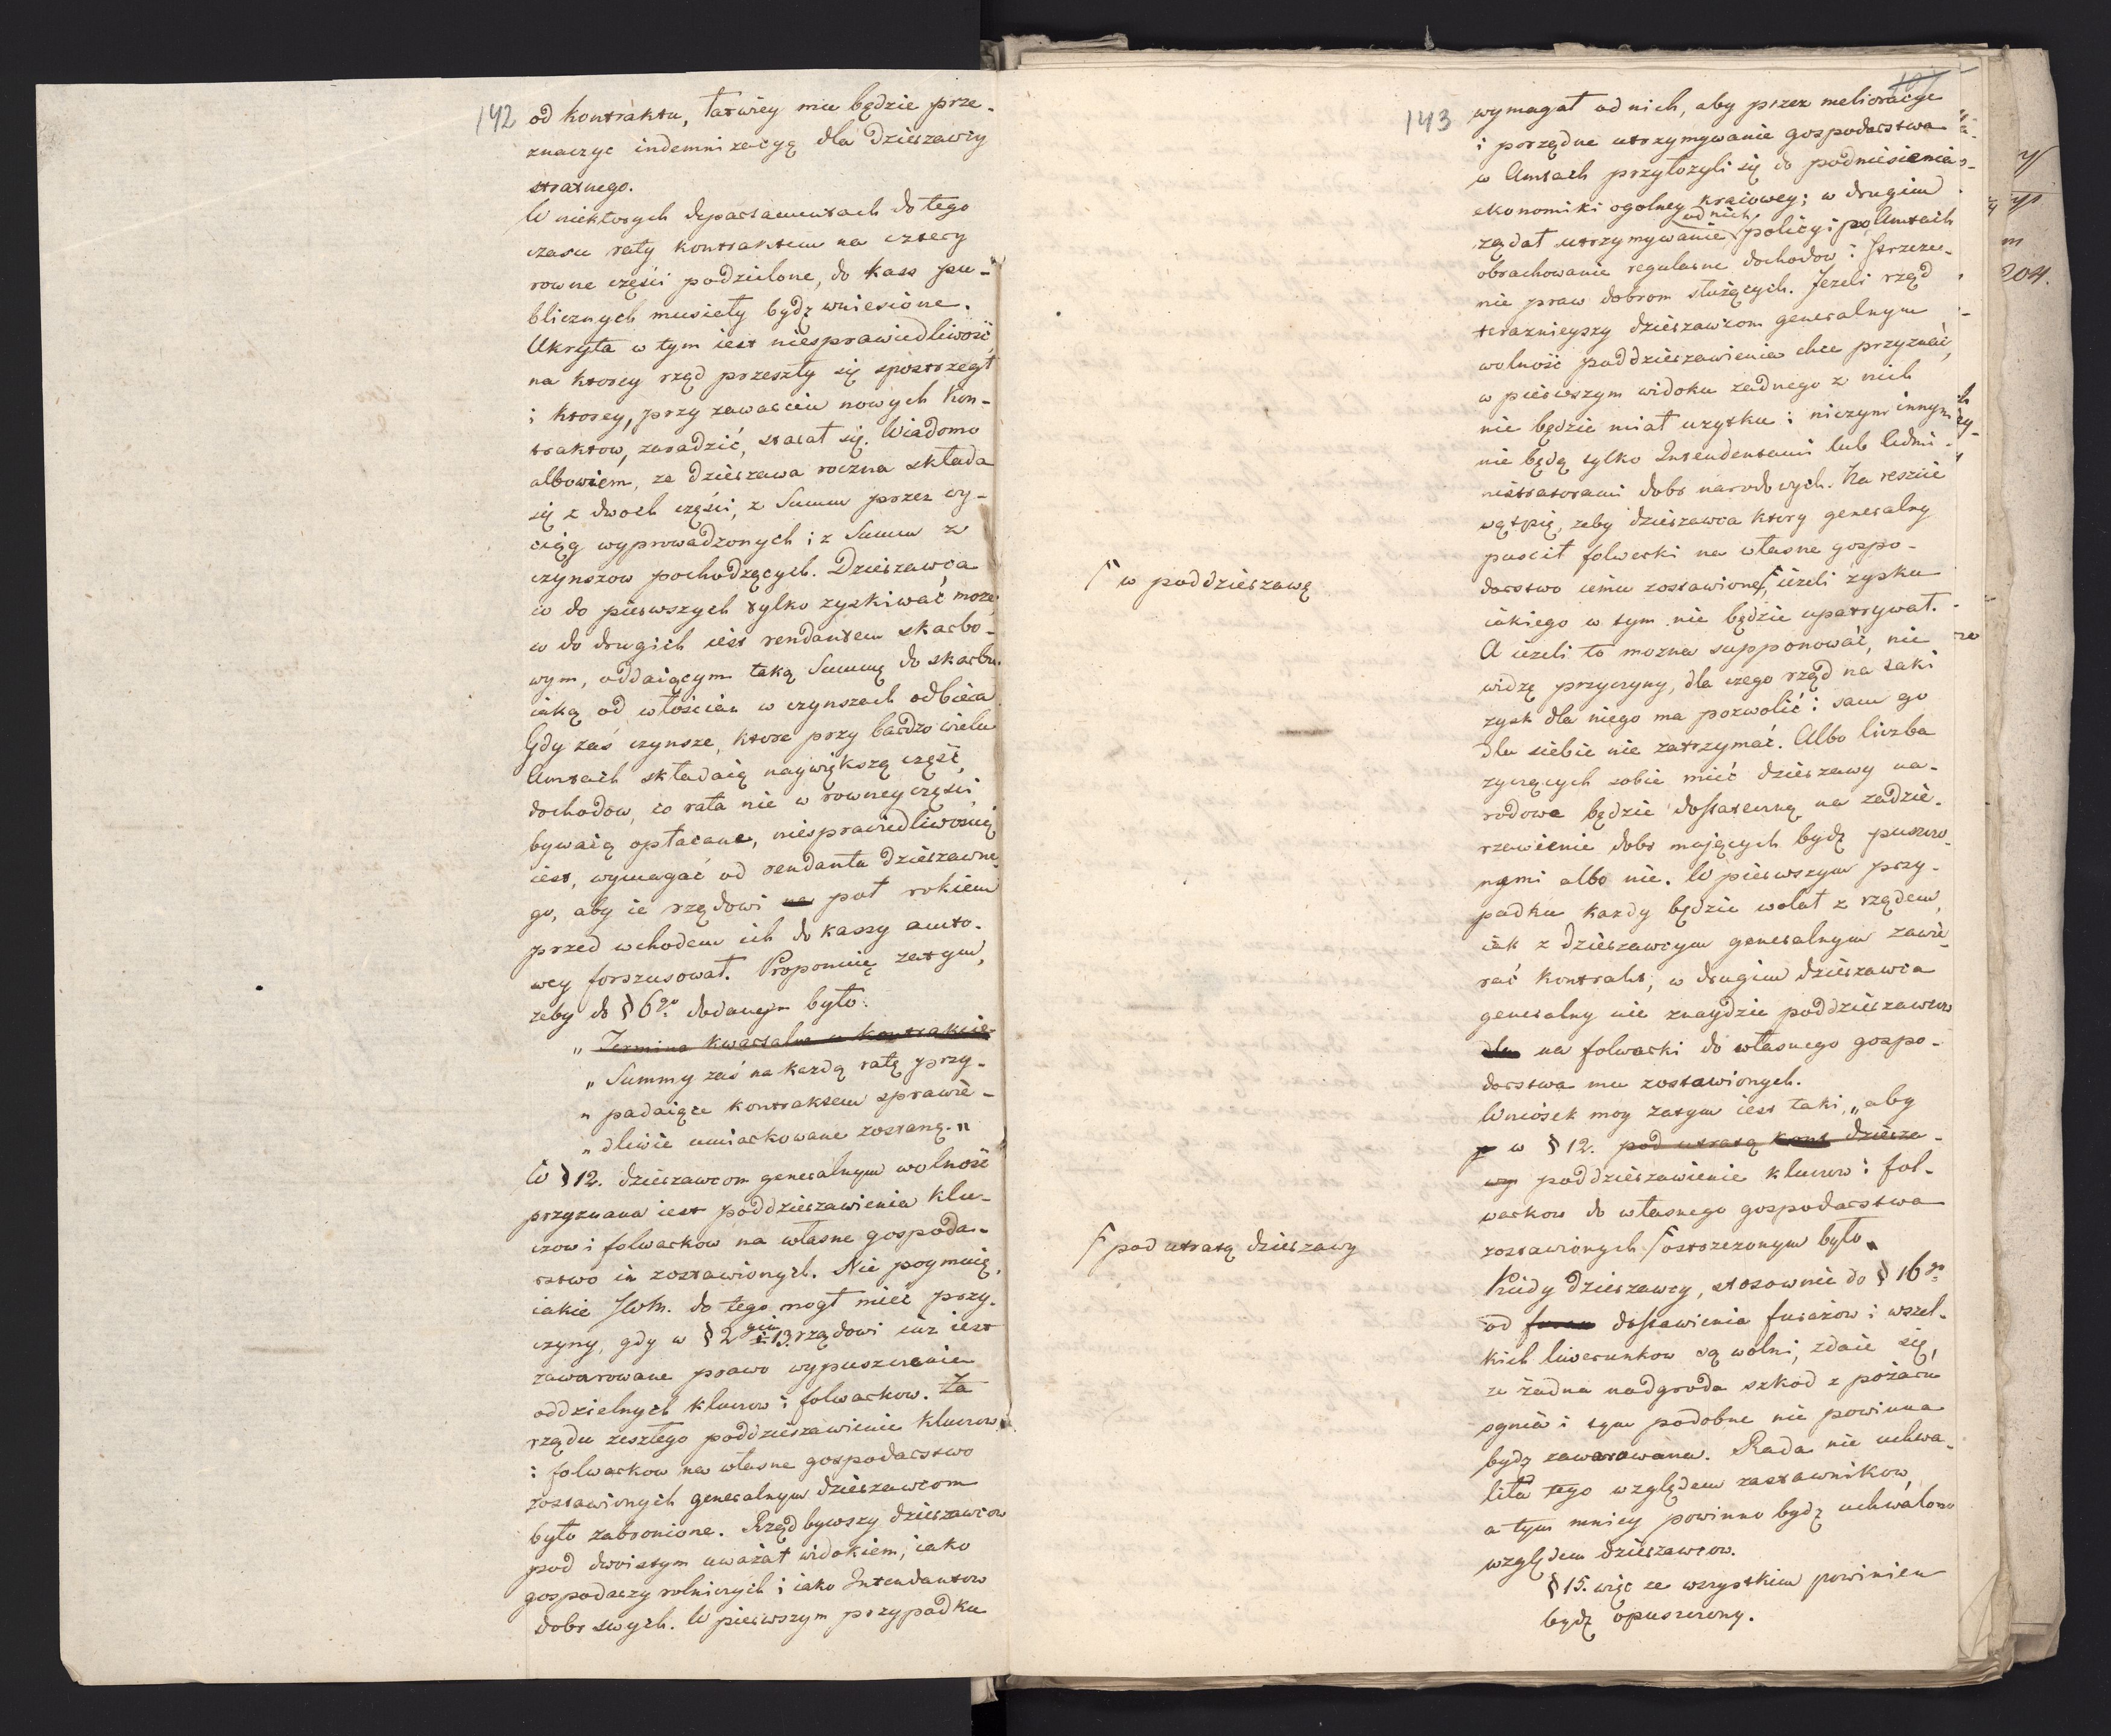 142
od kontraktu, łatwiey mu będzie prze-
znaczyć indemnizacyą dla Dzierzawcy
stratnego.
W niektorych departamentach do tego
czasu raty kontraktem na cztery
rowne części podzielone, do kass pu-
blicznych musiały bydź wniesione.
Ukryta w tym iest niesprawiedliwość,
na ktorey rząd przeszły się spostrzegł
i ktorey, przy zawarciu nowych kon-
traktow, zaradzić, starał się. Wiadomo
albowiem, ze dzierzawa roczna składa
się z dwoch części, z Summ przez wy-
ciąg wyprowadzonych i z Summ z
czynszow pochodzących. Dzierzawca
co do pierwszych tylko zyskiwać może,
co do drugich iest rendantem skarbo-
wym, oddaiącym taką Summę do skarbu
iaką od włościan w czynszach odbiera
Gdy zaś czynsze, ktore przy bardzo wielu
Amtach składaią naywiększą część,
dochodow, co rata nie w rowney części
bywaią opłacane, niesprawiedliwością
iest, wymagać od rendanta dzierzawne-
go, aby ie rządowi na poł rokiem
przed wchodem ich do kassy amto-
wey forszusował. Proponuię zatym,
zeby do § 6go. dodanym było:
„ Termina kwartalne w kontrakcie
„ Summy zaś na kazdą ratę przy-
„ padaiące kontraktem sprawie-
„ dliwie umiarkowane zostaną. „
W § 12. dzierzawcom generalnym wolność
przyznana iest poddzierzawienia klu-
czow i folwarkow na własne gospoda-
rstwo im zostawionych. Nie poymuię,
iakie JWM. do tego mogł mieć przy-
czyny, gdy w § 2gim i 13. rządowi iuż iest
zawarowane prawo wypuszczenia
oddzielnych kluczow i folwarkow. Za
rządu zeszłego poddzierzawienie kluczow
i folwarkow na własne gospodarstwo
zostawionych generalnym dzierzawcom
było zabronione. Rząd bywszy dzierzawcow
pod dwoistym uważał widokiem, iako
gospodarzy rolniczych i iako Intendantow
dobr swych. W pierwszym przypadku
143
wymagał od nich, aby przez melioracye
i porządne utrzymywanie gospodarstwa
w Amtach przyłozyli się do podniesienia
ekonomiki ogolney kraiowey; w drugim
od nich
ządał utrzymywanie policyi po Amtach
obrachowanie regularne dochodow i strzeze-
nie praw dobrom służących. Jezeli rząd
teraznieyszy dzierzawcom generalnym
wolność poddzierzawienia chce przyznać,
w pierwszym widoku zadnego z nich
nie będzie miał uzytku i niczym innym
nie będą tylko Intendentami lub Admi-
nistratorami dobr narodowych. Na reszcie
wątpię, zeby dzierzawca ktory generalny
puscił folwarki na własne gospo-
darstwo iemu zostawione, ieżeli zysku
iakiego w tym nie będzie upatrywał.
w poddzierzawę
A ieżeli to mozna supponować, nie
widzę przyczyny, dla czego rząd na taki
zysk dla niego ma pozwolić i sam go
dla siebie nie zatrzymać. Albo liczba
zyczących sobie mieć dzierzawy na-
rodowe będzie dostateczną na zadzie-
rzawienie dobr maiących bydź puszczo-
nymi albo nie. W pierwszym przy-
padku kazdy będzie wolał z rządem,
iak z dzierzawcym generalnym zawie-
rać kontrakt, w drugim dzierzawca
generalny nie znaydzie poddzierzawcow
dla na folwarki do własnego gospo-
darstwa mu zostawionych.
Wniosek moy zatym iest taki, „ aby
p w § 12. pod utratą kont dzierza-
wy poddzierzawienie kluczow i fol-
warkow do własnego gospodarstwa
zostawionych ostrzezonym było „
pod utratą dzierzawy
Kiedy dzierzawcy, stosownie do § 16go
od furaz dostawienia furażow i wszel-
kich liwerunkow są wolni, zdaie się,
ze żadna nadgroda szkod z pożaru
ognia i tym podobne nie powinna
bydź zawarowana. Rada nie uchwa-
liła tego względem zastawnikow
a tym mniey powinno bydź uchwalono
względem dzierzawcow.
§ 15. więc ze wszystkim powinien
bydź opuszczony.
204.